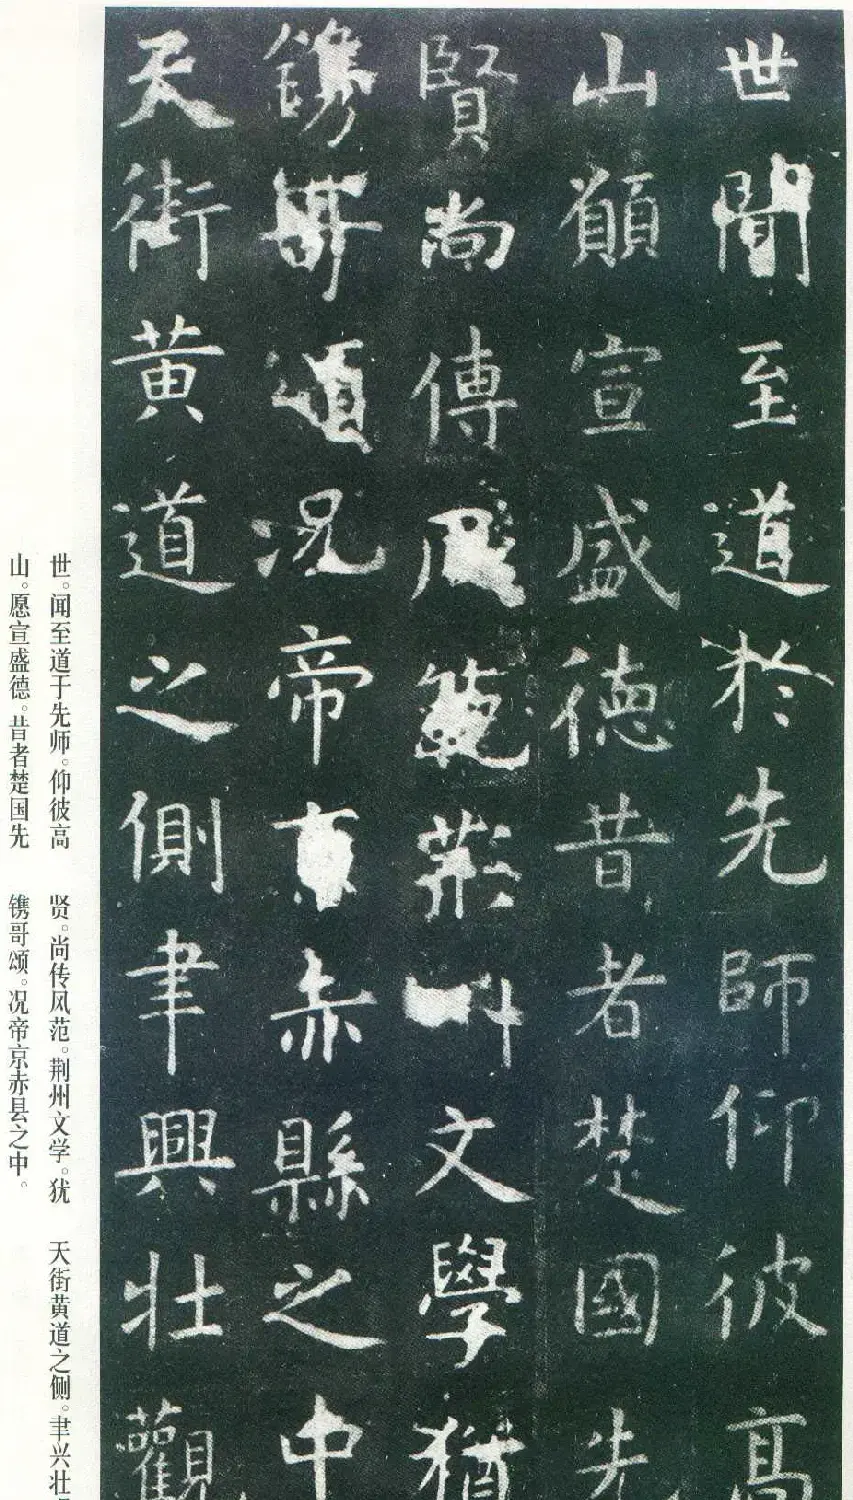 世聞至道於先師仰彼高
山願宣盛德昔者楚國先
賢尚傳風範荊州文學猶
鐫哥頌況帝京赤縣之中
天街黃道之側聿興壯觀
世。闻至道于先师。仰彼高
山。愿宣盛德。昔者楚国先
贤。尚传风范。荆州文学。犹
镌哥颂。况帝京赤县之中。
天街黄道之侧。聿兴壮